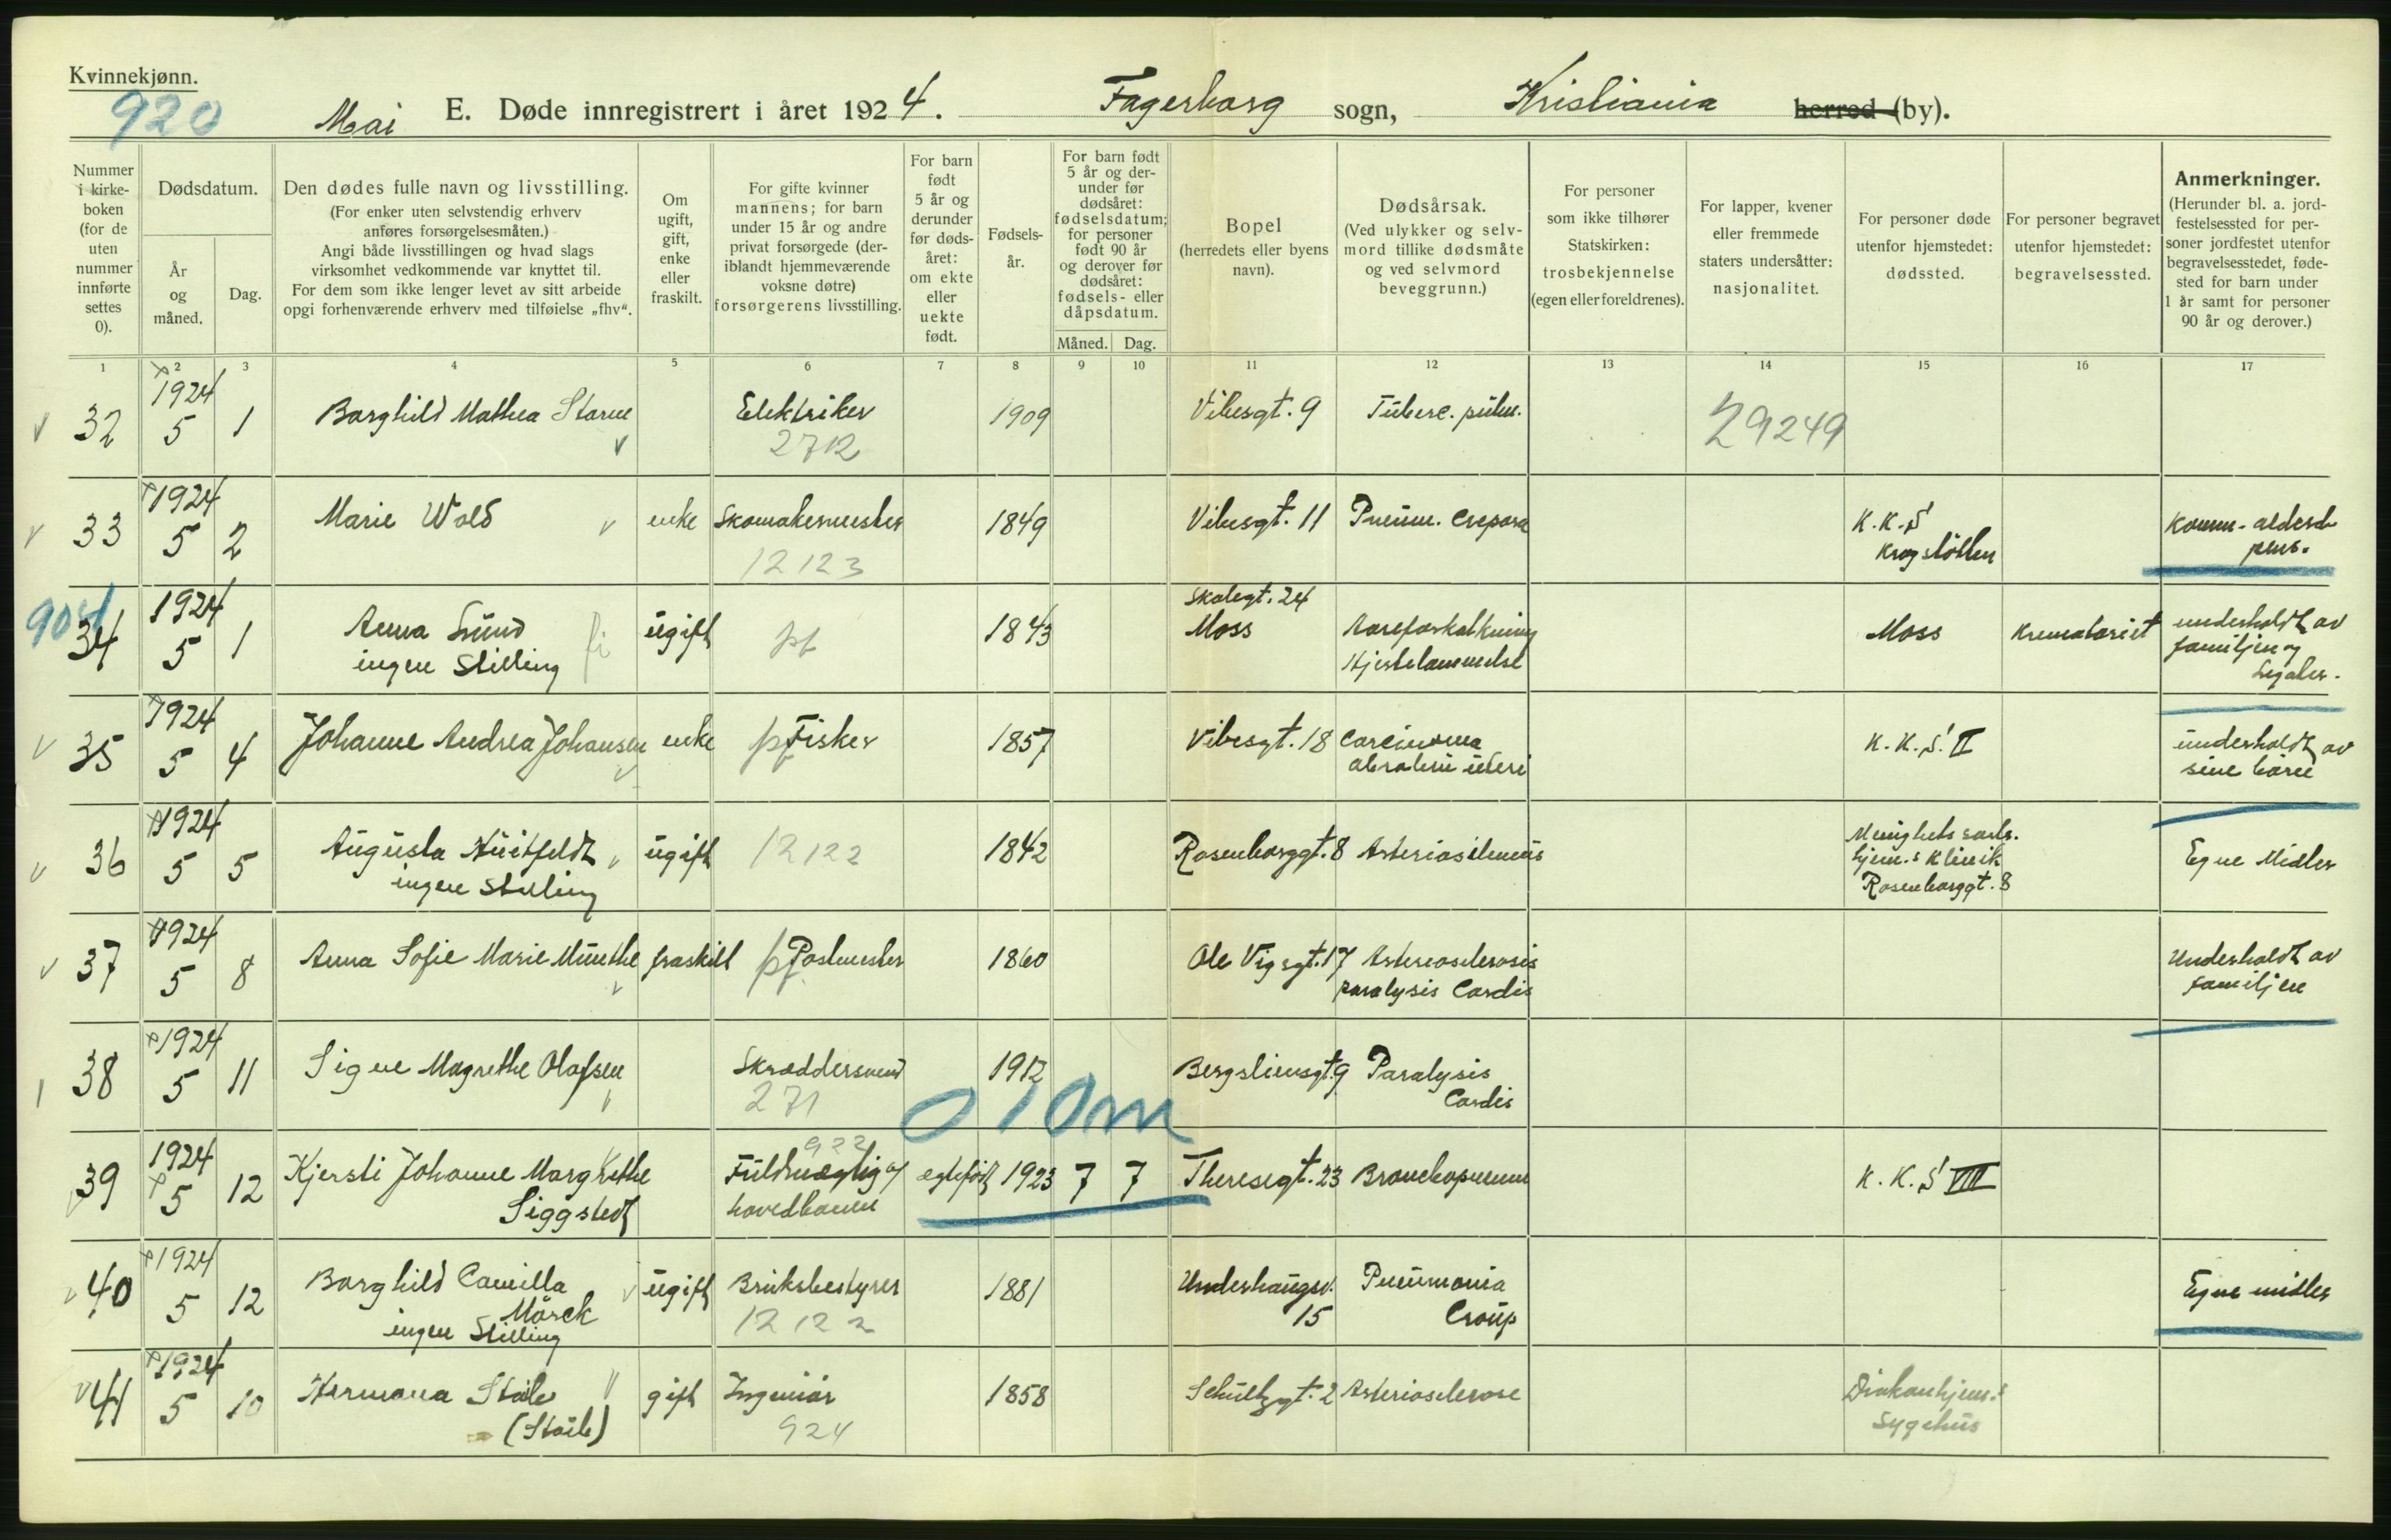 Kvinnekjønn.
920
Mai E. Døde innregistrert i året 1924. Fagerborg sogn, Kristiania herred (by).
Nummer i kirke-boken (for de uten nummer innførte settes 0).
Dødsdatum.
År og måned.
Dag.
Den dødes fulle navn og livsstilling.
(For enker uten selvstendig erhverv anføres forsørgelsesmåten.)
Angi både livsstillingen og hvad slags virksomhet vedkommende var knyttet til.
For dem som ikke lenger levet av sitt arbeide opgi forhenværende erhverv med tilføielse „fhv“.
Om ugift, gift, enke eller fraskilt.
For gifte kvinner mannens; for barn under 15 år og andre privat forsørgede (deriblandt hjemmeværende voksne døtre) forsørgerens livsstilling.
For barn født 5 år og derunder før dødsåret: om ekte eller uekte født.
Fødsels-år.
For barn født 5 år og derunder før dødsåret: fødselsdatum; for personer født 90 år og derover før dødsåret: fødsels- eller dåpsdatum.
Måned. Dag.
Bopel
(herredets eller byens navn).
Dødsårsak.
(Ved ulykker og selvmord tillike dødsmåte og ved selvmord beveggrunn.)
For personer som ikke tilhører Statskirken: trosbekjennelse (egen eller foreldrenes).
For lapper, kvener eller fremmede staters undersåtter: nasjonalitet.
For personer døde utenfor hjemstedet: dødssted.
For personer begravet utenfor hjemstedet: begravelsessted.
Anmerkninger.
(Herunder bl. a. jordfestelsessted for personer jordfestet utenfor begravelsesstedet, fødested for barn under 1 år samt for personer 90 år og derover.)
1 2 3 4 5 6 7 8 9 10 11 12 13 14 15 16 17
32 1924 5 1 Borghild Mathea Elektriker 1909 Vibesgt. 9 Tuberc. pulm. 29249
2712
33 1924 5 2 Marie Wold enke Skomakermester 1849 Vibesgt. 11 Pneum. K.K.S. Krogstøtten Komm. alderd. pens.
12123
904
34 1924 5 1 Anna Lund ugift 1843 Skolegt. 24 Moss Aareforkalkning Hjertelammelse Moss Krematoriet underholdt av familjen og Legater.
ingen Stilling
35 1924 5 4 Johanne Andrea Johansen enke Fisker 1857 Vibesgt. 18 Carcinoma uteri K.K.S. II underholdt av sine barn
36 1924 5 5 Augusta Huitfeldt ugift 12122 1842 Rosenborggt. 8 Menighetssøsterhjem.s Klinik Rosenborggt. 8 Egne Midler
ingen Stilling
37 1924 5 8 Anna Sofie Marie Munthe fraskilt Postmester 1860 Ole Vigsgt. 17 Arterioslerosis paralysis Cordis Underholdt av familjen
38 1924 5 11 Signe Magrethe Olafsen Skræddersvend 1912 Bergsliensgt. 9 Paralysis Cordis
271
010m
922
39 1924 5 12 Kjersti Johanne Margrethe Siggstedt Fuldmægtig hovedbanen egtefødt 1923 7 7 Theresegt. 23 Bronchopneum K.K.S. VIII
40 1924 5 12 Borghild Camilla Mørck ugift Bruksbestyrer 1881 Underhaugsv. 15 Pneumonia Croup Egne midler
ingen Stilling 12122
41 1924 5 10 Hermona Støile (Støile) gift Ingeniør 1858 Schultzgt. 2 Arteriosclerose Diakonhjem.s Sygehus
924